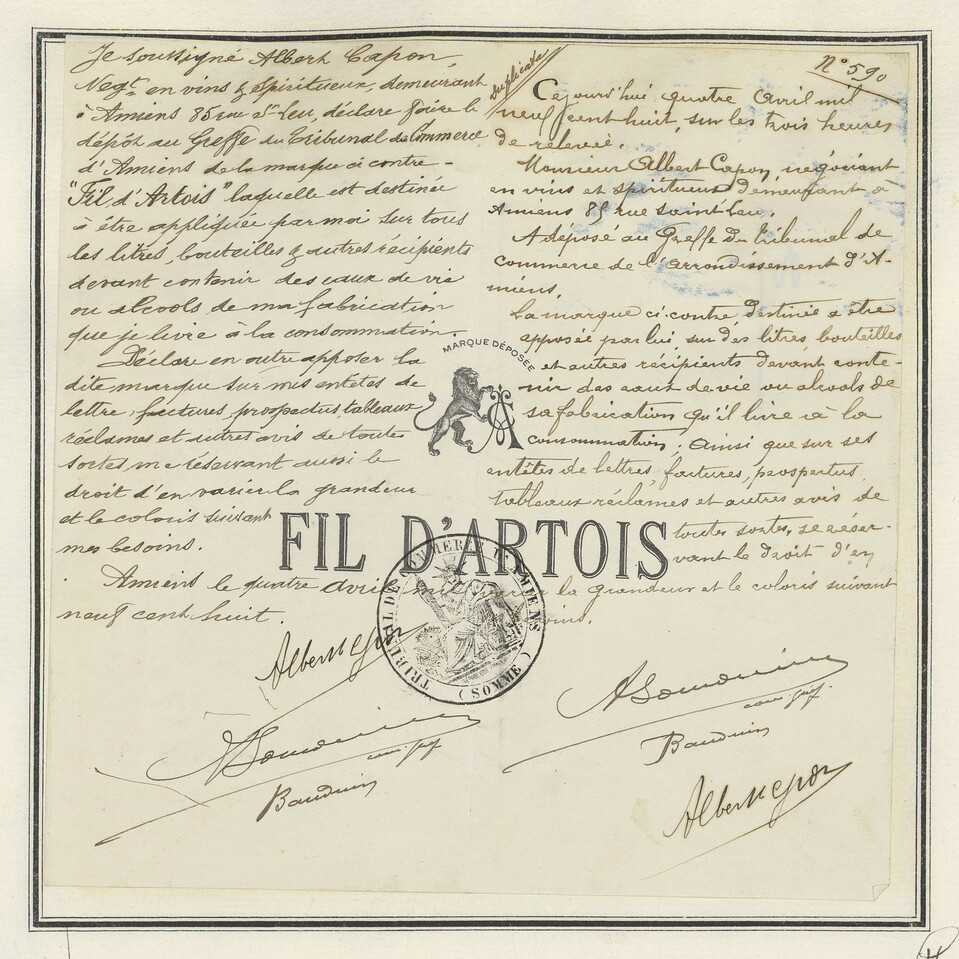 Je soussigné Albert Capon,
Negt. en vins & Spiritueux, demeurant
à Amiens 85 rue St Leu, déclare faire le
dépôt au Greffe du Tribunal de Commerce
d'Amiens de la marque ci contre -
"Fil d'Artois" laquelle est destinée
à être appliquée par moi sur tous
les litres, bouteilles & autres récipients
devant contenir des eaux de vie
ou alcools de ma fabrication
que je livre à la consommation. -
Déclare en outre apposer la
dite marque sur mes entêtes de
lettre, factures, prospectus tableaux
réclames et autres avis de toutes
sortes, me réservant aussi le
droit d'en varier la grandeur
et le coloris suivant
mes besoins.
Amiens le quatre avril mil
neuf cent huit.
Albert Capon
Bauduin
duplicata
N° 590
Cejourd'hui quatre Avril mil
neuf cent huit, sur les trois heures
de relevée.
Monsieur Albert Capon, négociant
en vins et spiritueux demeurant à
Amiens 85 rue Saint Leu.
A déposé au Greffe du Tribunal de
commerce de l'arrondissement d'A-
miens,
La marque ci-contre destinée à être
apposée par lui, sur des litres, bouteilles
et autres récipients devant conte-
nir des eaux de vie ou alcools de
sa fabrication qu'il livre à la
consommation ; Ainsi que sur ses
entêtes de lettres, factures, prospectus,
tableaux réclames et autres avis de
toutes sortes, se réser-
vant le droit d'en
la grandeur et le coloris suivant
Bauduin
Albert Capon
MARQUE DÉPOSÉE
FIL D'ARTOIS
TRIBUNAL DE COMMERCE D'AMIENS
(SOMME)